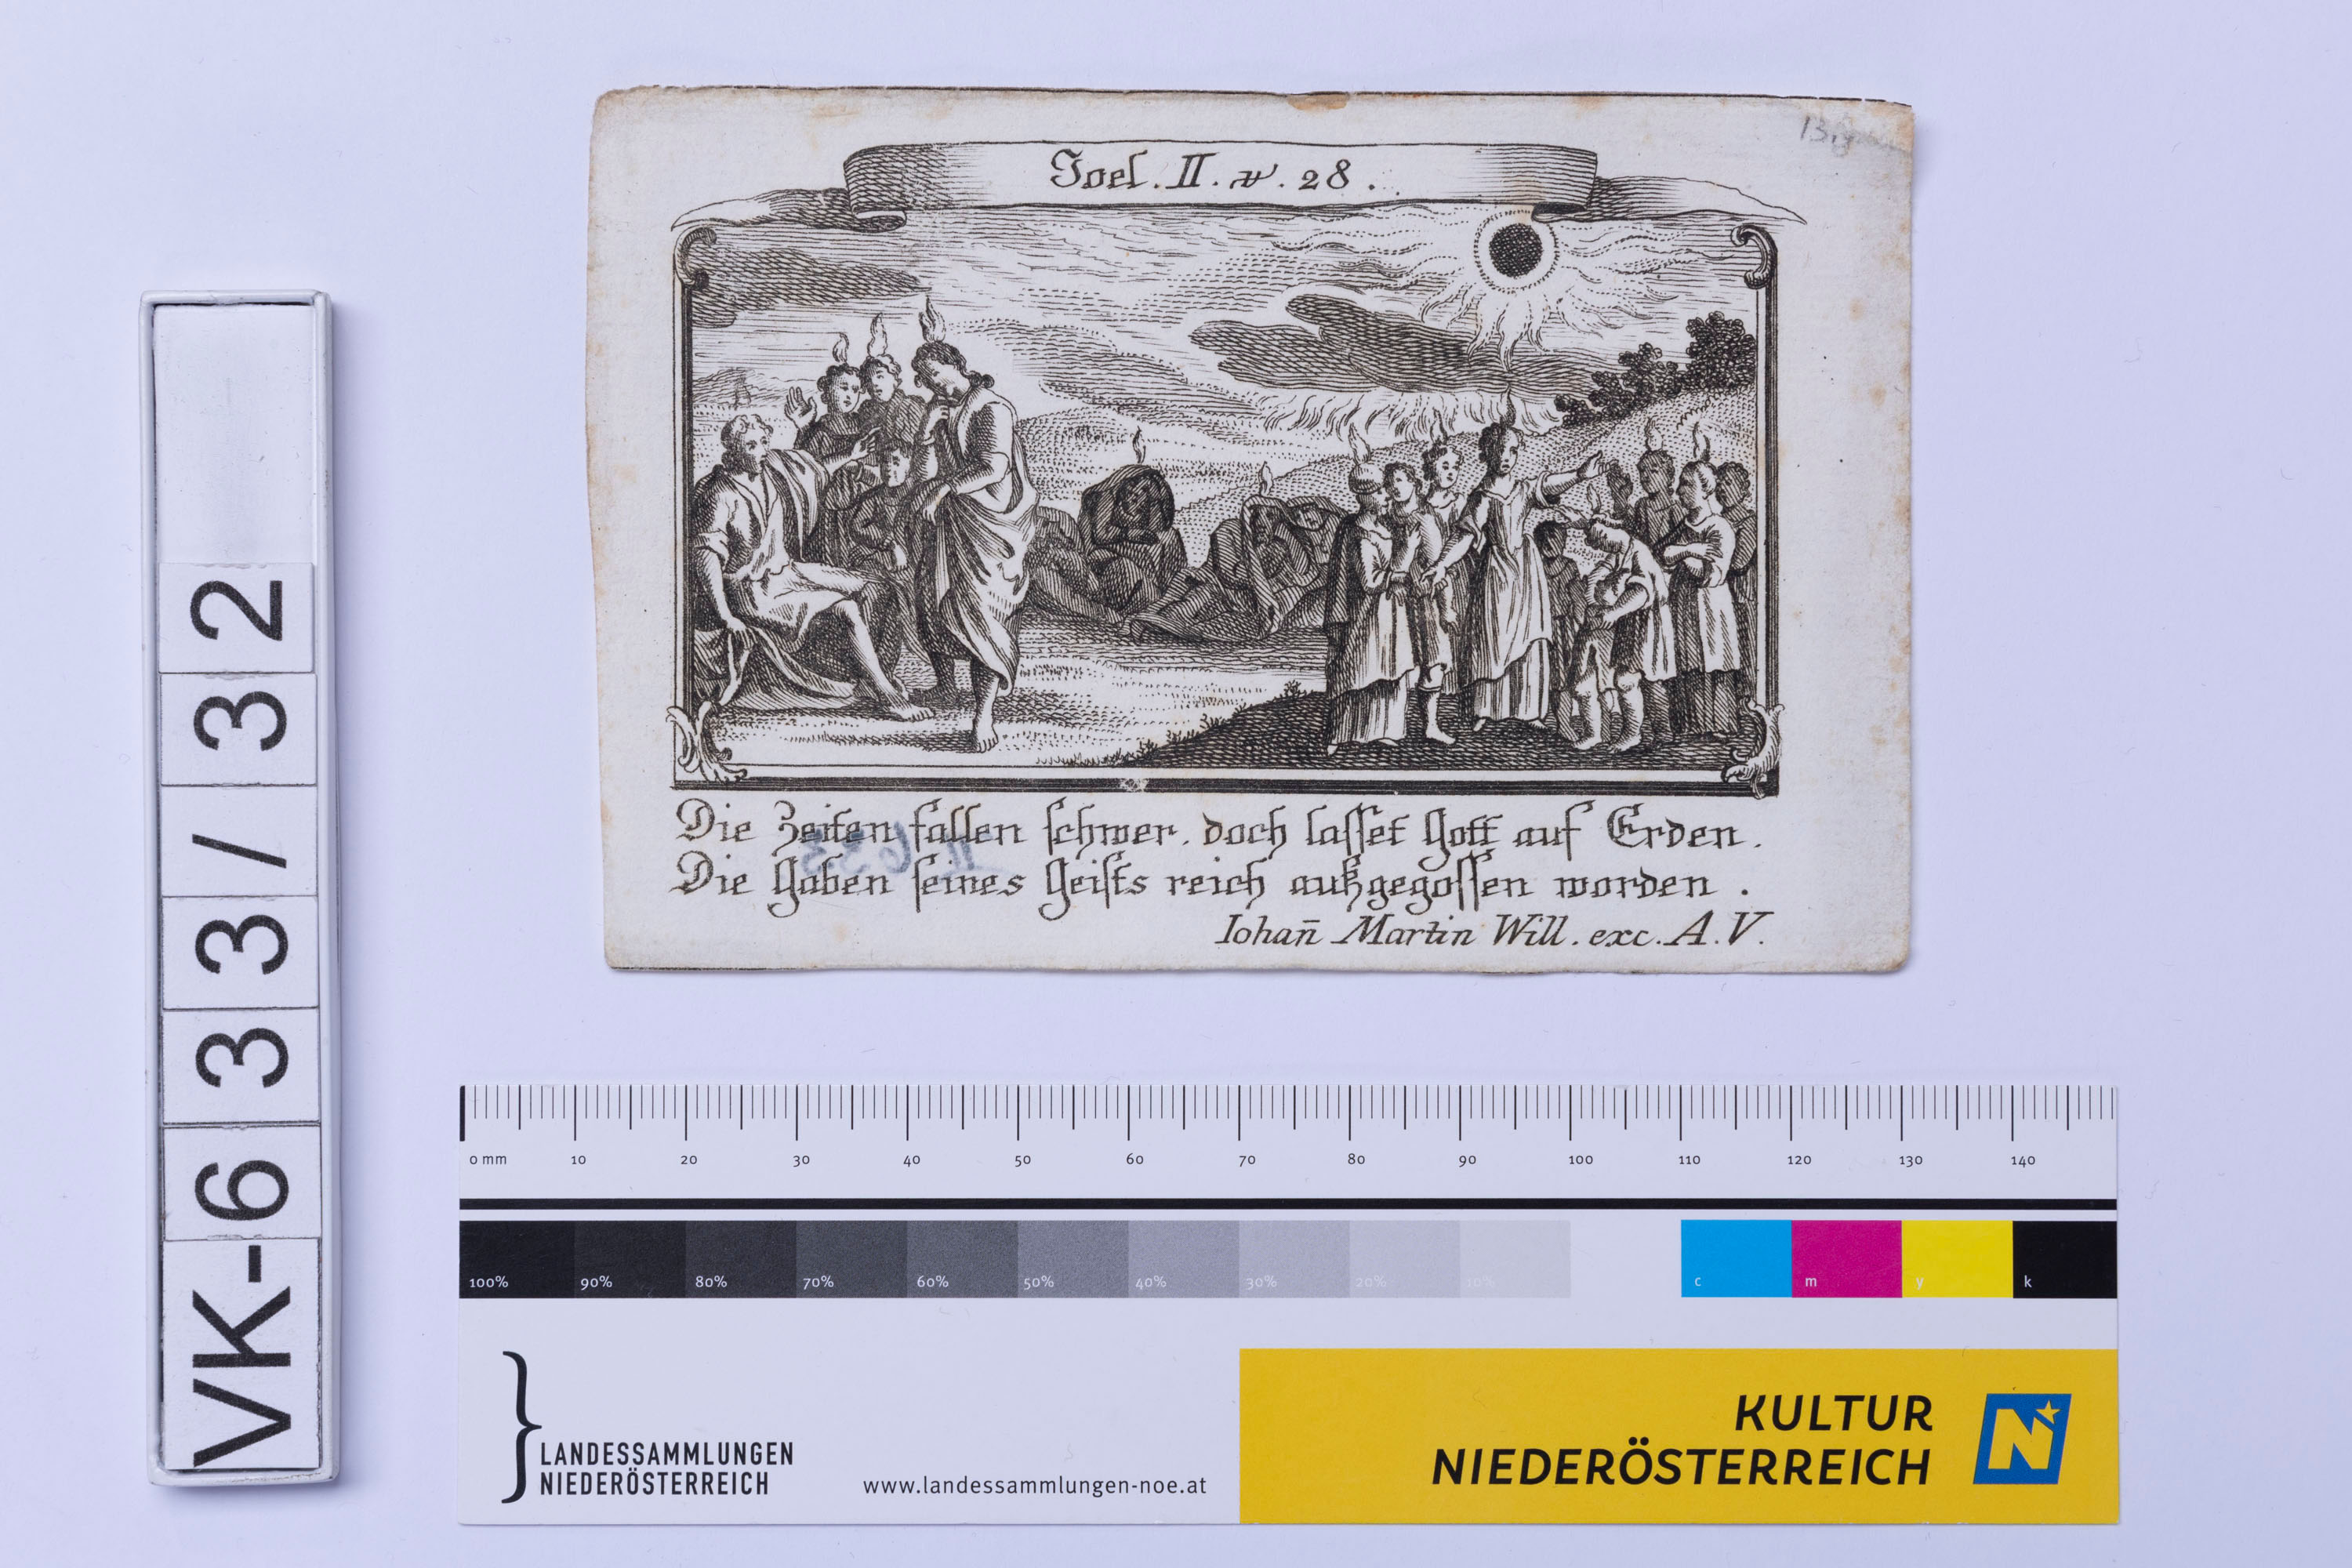 VK-633/32
Joel. II. v. 28.
Die Zeiten fallen schwer. doch lasset Gott auf Erden.
Die Gaben seines Geists reich außgegossen worden.
Iohan̄ Martin Will. exc. A. V.
0 mm 10 20 30 40 50 60 70 80 90 100 110 120 130 140
100% 90% 80% 70% 60% 50% 40% 30% 20% 10% c m y k
LANDESSAMMLUNGEN
NIEDERÖSTERREICH
www.landessammlungen-noe.at
KULTUR
NIEDERÖSTERREICH
N